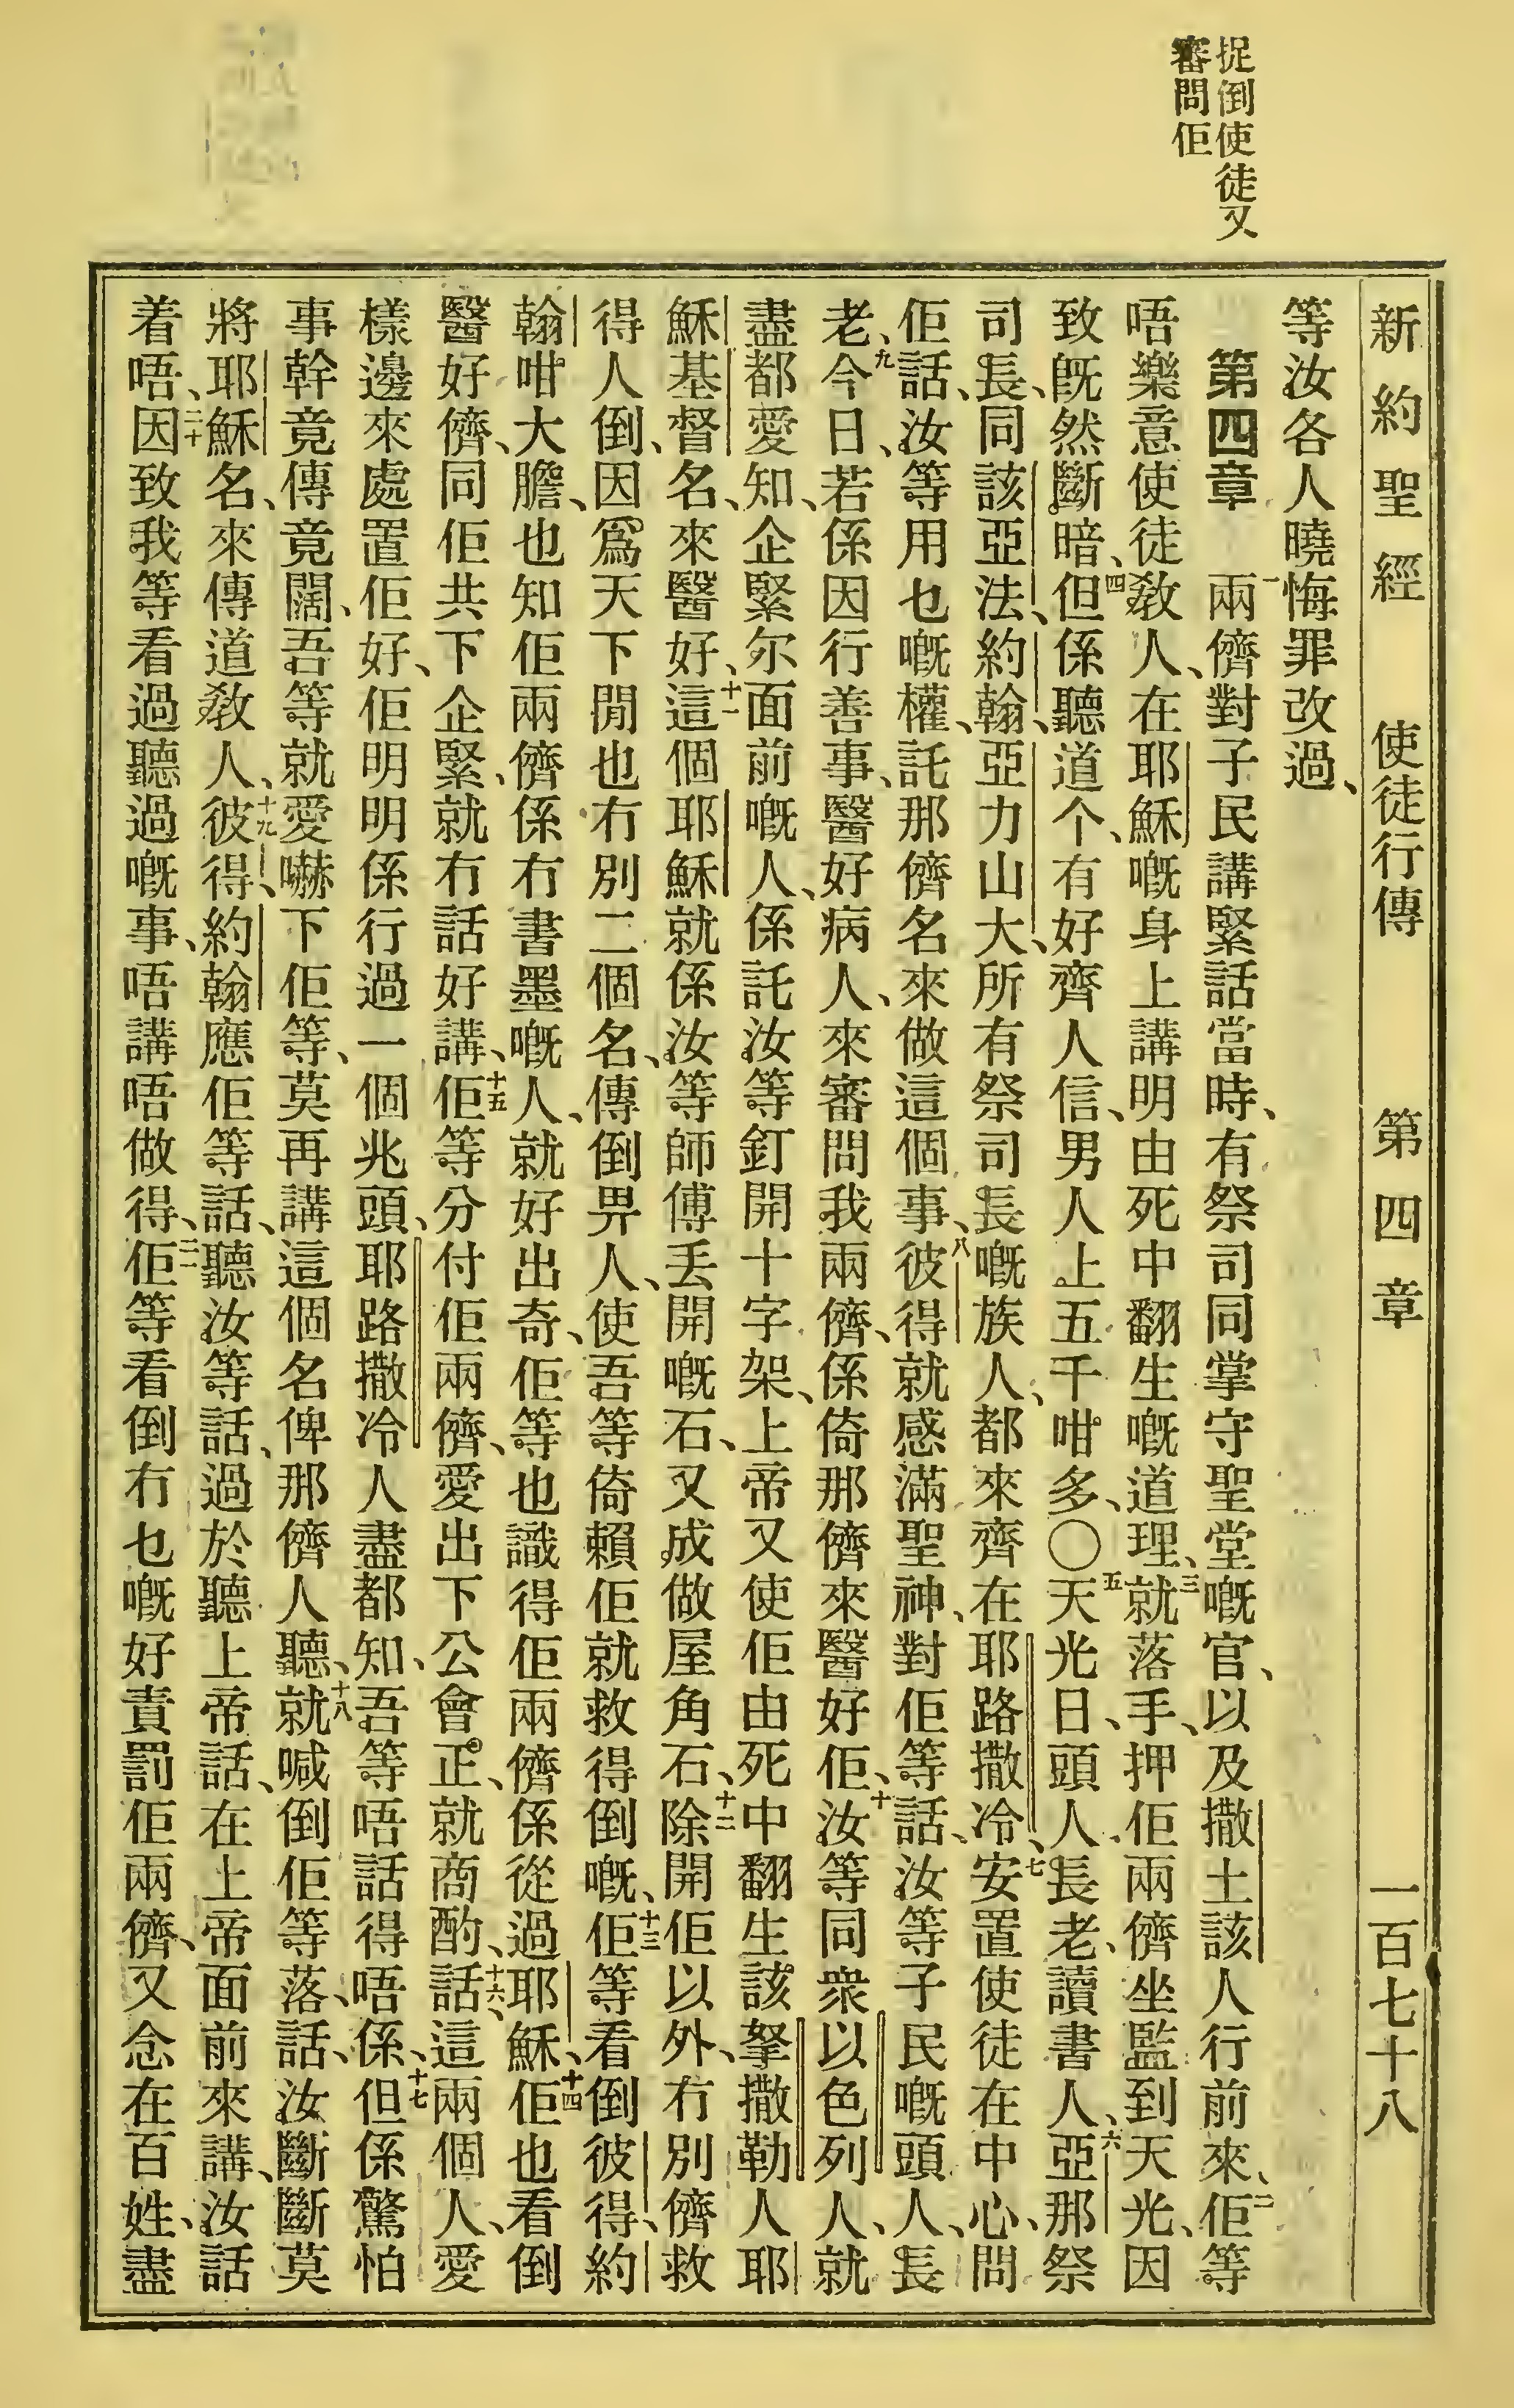 捉倒使徒又
審問佢
新約聖經 使徒行傳 第四章 一百七十八
等汝各人曉悔罪改過、
第四章 一兩儕對子民講緊話當時、有祭司同掌守聖堂嘅官、以及撒土該人行前來、二佢等
唔樂意使徒敎人、在耶穌嘅身上講明由死中翻生嘅道理、三就落手、押佢兩儕坐監到天光、因
致旣然斷暗、四但係聽道个、有好齊人信、男人上五千咁多、〇五天光日、頭人、長老、讀書人、六亞那祭
司長、同該亞法、約翰、亞力山大、所有祭司長嘅族人、都來齊在耶路撒冷、七安置使徒在中心、問
佢話、汝等用乜嘅權、託那儕名來做這個事、八彼得就感滿聖神、對佢等話、汝等子民嘅頭人、長
老、九今日、若係因行善事、醫好病人、來審問我兩儕、係倚那儕來醫好佢、十汝等同衆以色列人、就
盡都愛知、企緊尔面前嘅人、係託汝等釘開十字架、上帝又使佢由死中翻生該拏撒勒人耶
穌基督名、來醫好、十一這個耶穌就係汝等師傅丢開嘅石、又成做屋角石、十二除開佢以外、冇別儕救
得人倒、因爲天下閒也冇別二個名、傳倒畀人、使吾等倚賴佢就救得倒嘅、十三佢等看倒彼得、約
翰咁大膽、也知佢兩儕係冇書墨嘅人、就好出奇、佢等也識得佢兩儕係從過耶穌、十四佢也看倒
醫好儕、同佢共下企緊、就冇話好講、十五佢等分付佢兩儕、愛出下公會正、就商酌、十六話、這兩個人、愛
樣邊來處置佢好、佢明明係行過一個兆頭、耶路撒冷人盡都知、吾等唔話得唔係、十七但係驚怕
事幹竟傳竟闊、吾等就愛嚇下佢等、莫再講這個名俾那儕人聽、十八就喊倒佢等落、話、汝斷斷莫
將耶穌名、來傳道敎人、十九彼得、約翰應佢等話、聽汝等話、過於聽上帝話、在上帝面前來講、汝話
着唔、二十因致我等看過聽過嘅事、唔講唔做得、二一佢等看倒冇乜嘅好責罰佢兩儕、又念在百姓、盡